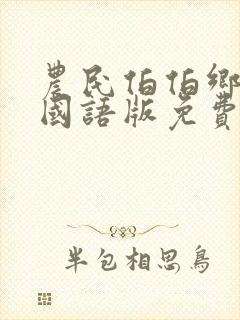 農民伯伯鄉
國語版免費
半包相思鳥